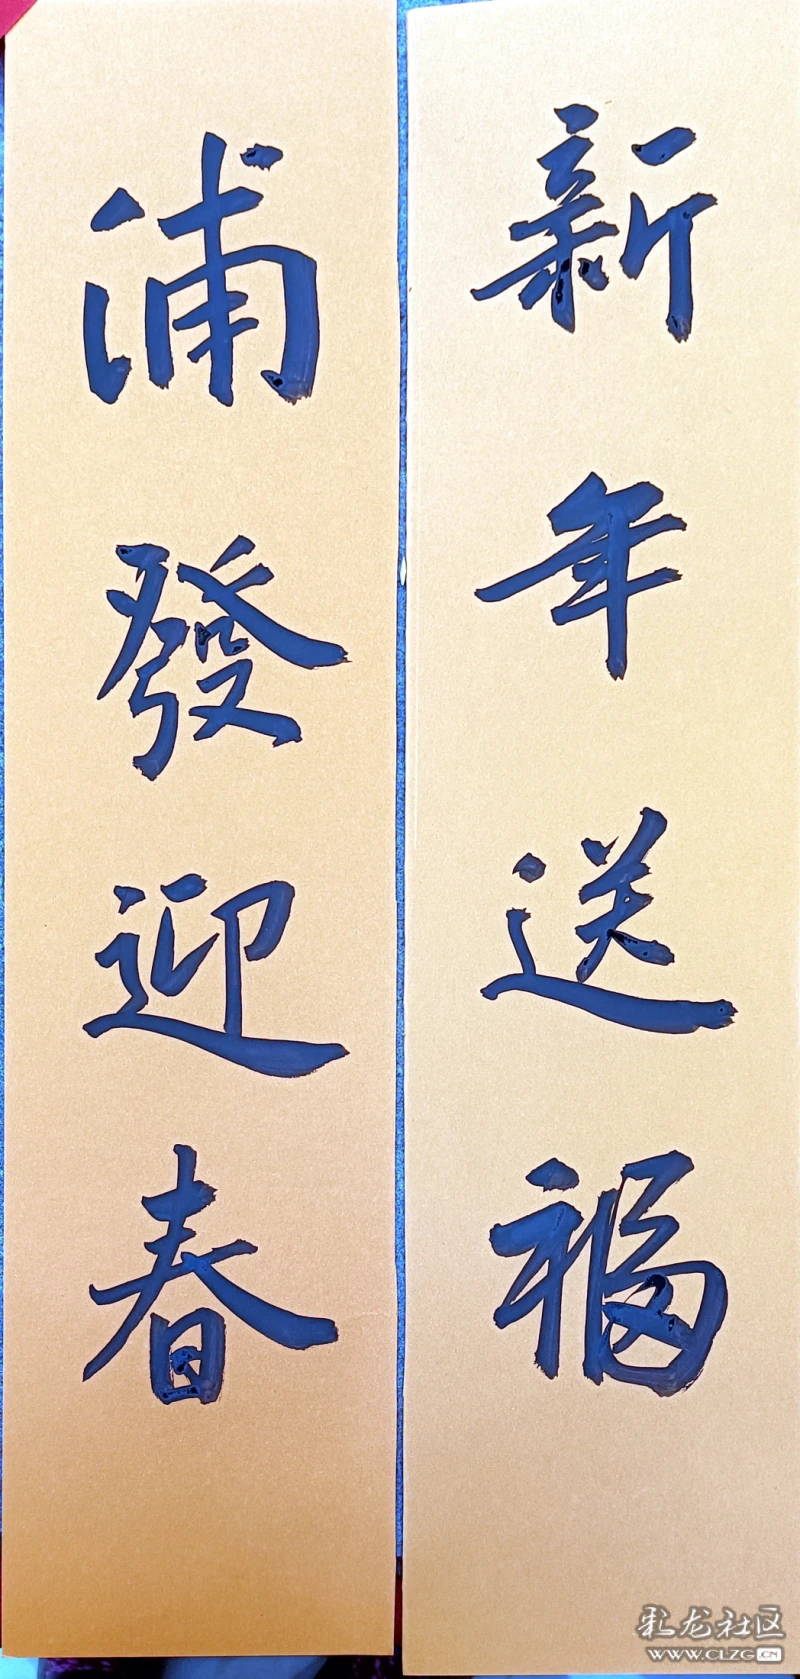 新年送福
浦發迎春
彩龙社区
WWW.CLZG.CN